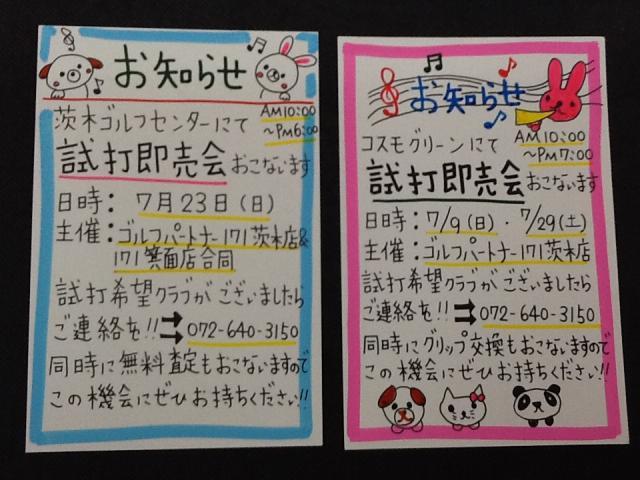 お知らせ
茨木ゴルフセンターにて
AM10:00
~PM6:00
試打即売会おこないます
日時: 7月23日(日)
主催:ゴルフパートナー171茨木店&
171箕面店合同
試打希望クラブがございましたら
ご連絡を!!⇒072-640-3150
同時に無料査定もおこないますので
この機会にぜひお持ちください!!
お知らせ
コスモグリーンにて
AM10:00
~PM7:00
試打即売会おこないます
日時:7/9(日)・7/29(土)
主催:ゴルフパートナー171茨木店
試打希望クラブがございましたら
ご連絡を!!⇒072-640-3150
同時にグリップ交換もおこないますので
この機会にぜひお持ちください!!